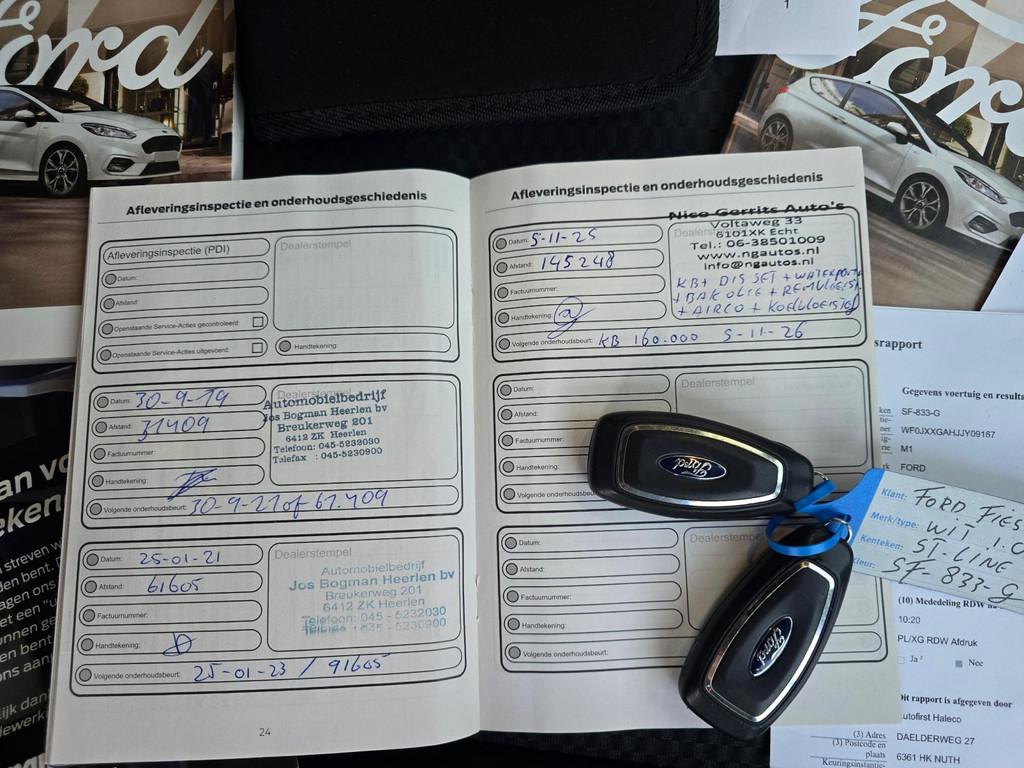 Ford
Ford
1
Afleveringsinspectie en onderhoudsgeschiedenis
Afleveringsinspectie (PDI)
Datum:
Afstand:
Openstaande Service-Acties gecontroleerd:
Openstaande Service-Acties uitgevoerd:
Dealerstempel
Handtekening:
Datum: 30-9-19
Afstand: 31409
Factuurnummer:
Handtekening:
Volgende onderhoudsbeurt: 30-9-21 of 61.409
Dealerstempel
Automobielbedrijf
Jos Bogman Heerlen bv
Breukerweg 201
6412 ZK Heerlen
Telefoon: 045-5232030
Telefax : 045-5230900
Datum: 25-01-21
Afstand: 61605
Factuurnummer:
Handtekening:
Volgende onderhoudsbeurt: 25-01-23 / 91605
Dealerstempel
Automobielbedrijf
Jos Bogman Heerlen bv
Breukerweg 201
6412 ZK Heerlen
Telefoon: 045 - 5232030
Telefax : 045 - 5230900
24
Afleveringsinspectie en onderhoudsgeschiedenis
Nico Gerrits Auto's
Voltaweg 33
6101XK Echt
Tel.: 06-38501009
www.ngautos.nl
info@ngautos.nl
Datum: 5-11-25
Afstand: 145248
Factuurnummer:
Handtekening:
KB + DIS SET + WATERPOMP
+ BAK OLIE + REMVLOEIST
+ AIRCO + KOELVLOEISTOF
Volgende onderhoudsbeurt: KB 160.000 5-11-26
Datum:
Afstand:
Factuurnummer:
Handtekening:
Volgende onderhoudsbeurt:
Dealerstempel
Datum:
Afstand:
Factuurnummer:
Handtekening:
Volgende onderhoudsbeurt:
Ford
Ford
Klant: FORD FIES
Merk/type: WIT 1.0
Kenteken: ST-LINE
Kleur: SF-833-G
srapport
Gegevens voertuig en resulta
SF-833-G
WF0JXXGAHJJY09167
M1
FORD
(10) Mededeling RDW
10:20
PL/XG RDW Afdruk
Ja ² Nee
Dit rapport is afgegeven door
Autofirst Haleco
(3) Adres DAELDERWEG 27
(3) Postcode en
plaats 6361 HK NUTH
Keuringsinstantie-